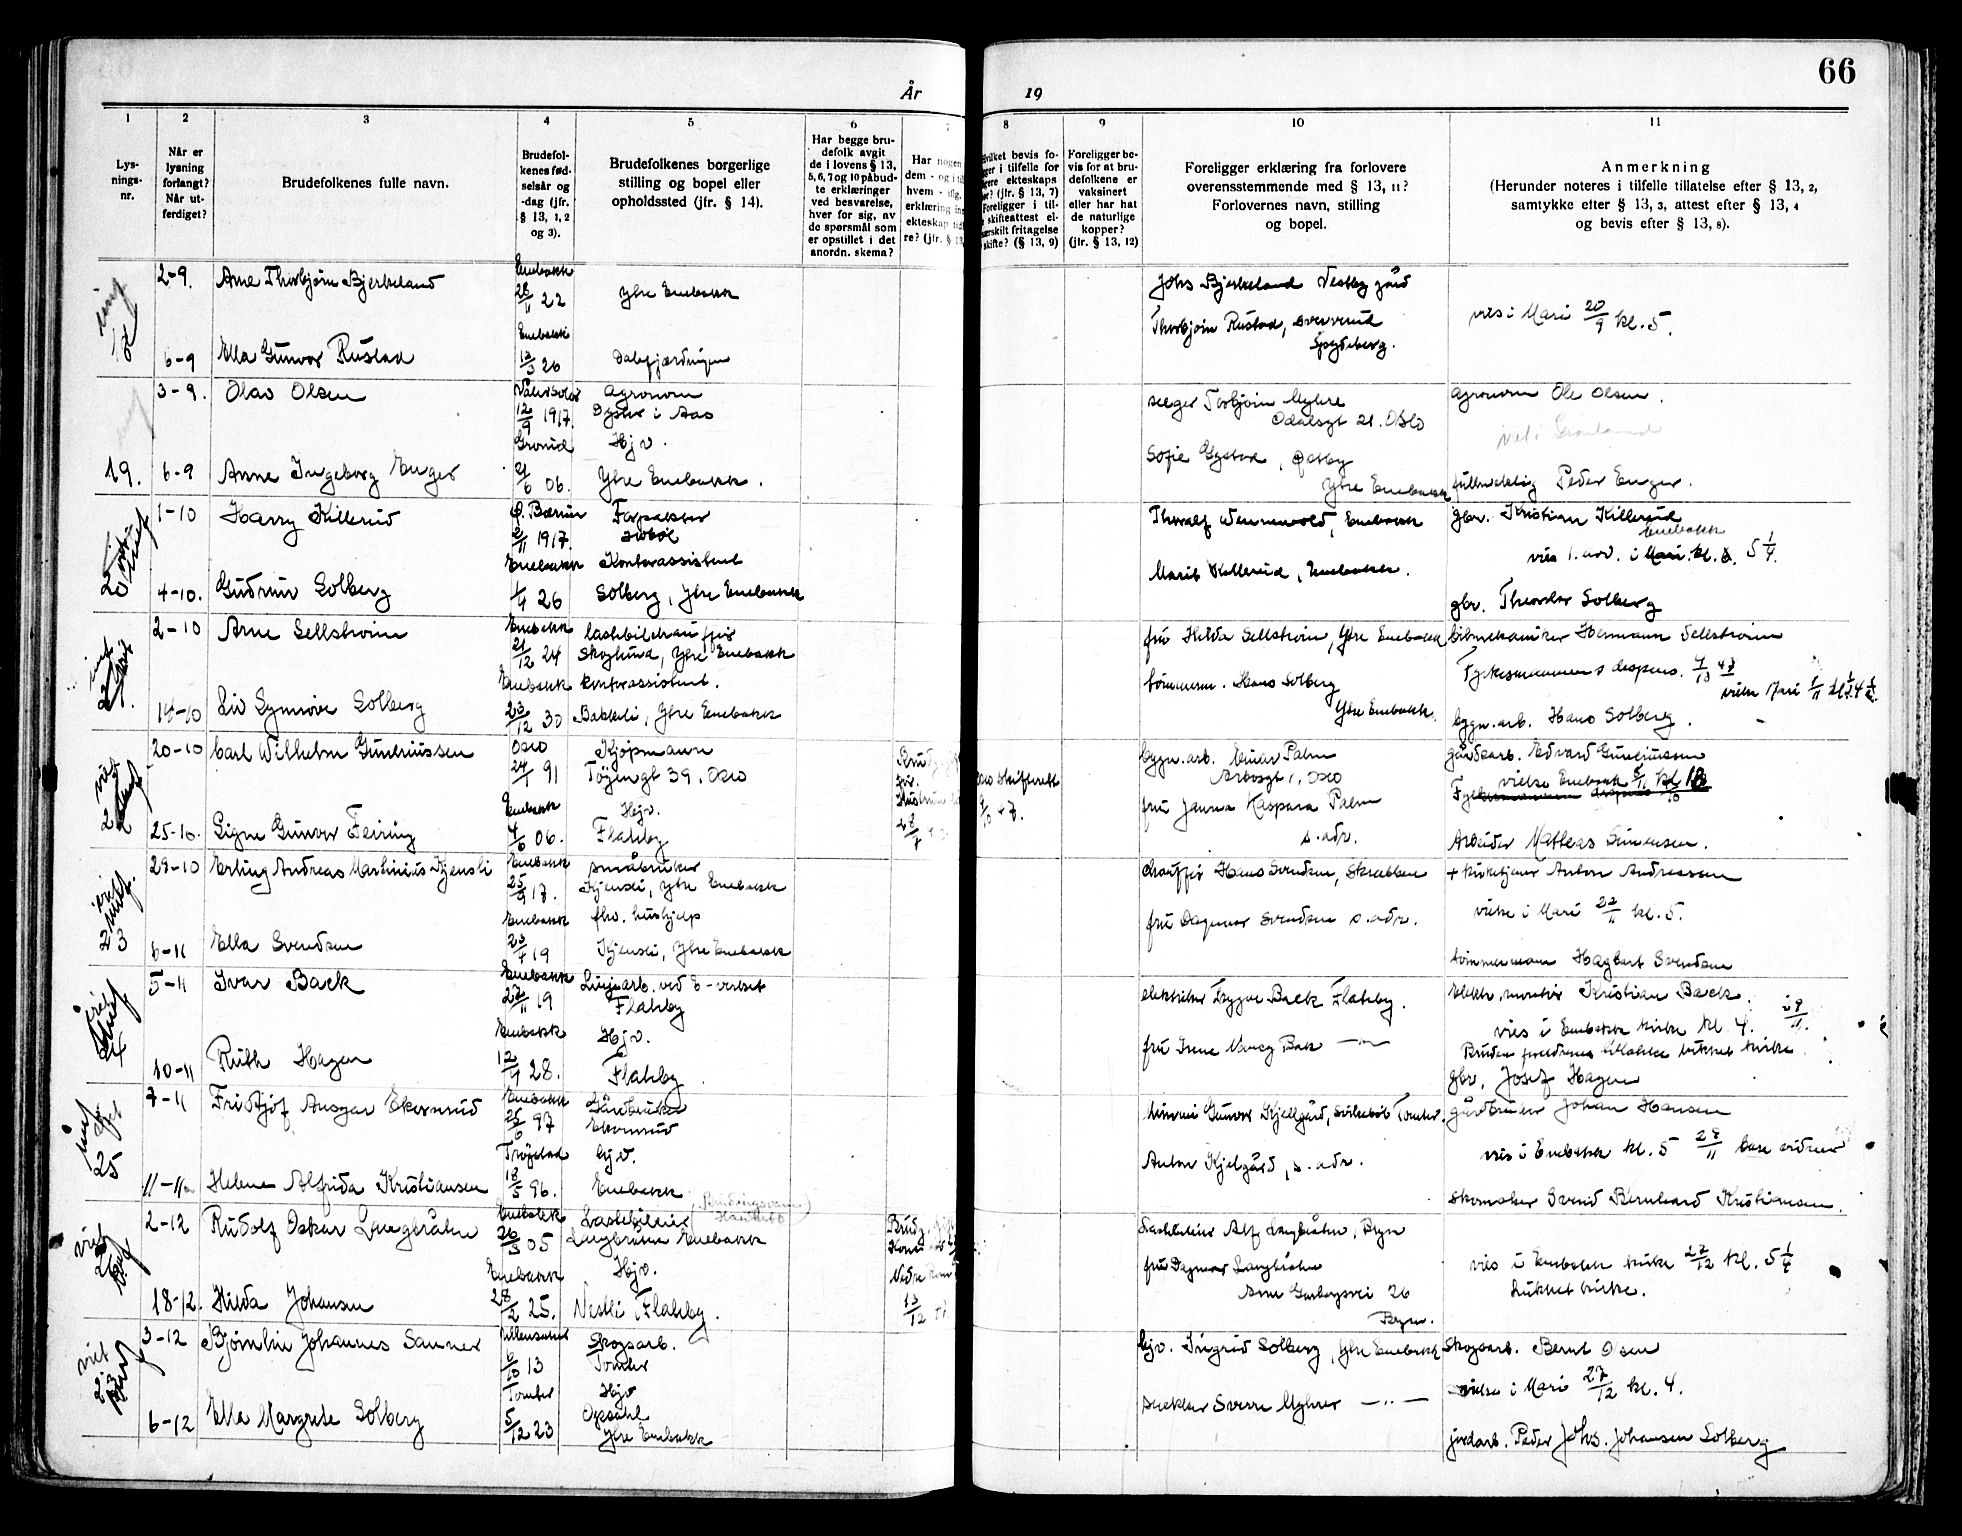 66
År 19
1
Lysnings-
nr.
2
Når er
lysning
forlangt?
Når ut-
ferdiget?
3
Brudefolkenes fulle navn.
4
Brudefol-
kenes fød-
selsår og
-dag (jfr.
§ 13, 1, 2
og 3).
5
Brudefolkenes borgerlige
stilling og bopel eller
opholdssted (jfr. § 14).
6
Har begge bru-
defolk avgit
de i lovens § 13,
5, 6, 7 og 10 påbud-
te erklæringer
ved besvarelse,
hver for sig, av
de spørsmål som
er opstillet i det
anordn. skema?
7
Har nogen
dem - og i til
hvem - iflg.
erklæring in
ekteskap tid
re? (jfr. § 13
8
Hvilket bevis fo-
ger i tilfelle for
gere ekteskaps
(jfr. § 13, 7)
Foreligger i til-
skifteattest el-
særskilt fritagelse
skifte? (§ 13, 9)
9
Foreligger be-
vis for at bru-
defolkene er
vaksinert
eller har hat
de naturlige
kopper?
(jfr. § 13, 12)
10
Foreligger erklæring fra forlovere
overensstemmende med § 13, 11?
Forlovernes navn, stilling
og bopel.
11
Anmerkning
(Herunder noteres i tilfelle tillatelse efter § 13, 2,
samtykke efter § 13, 3, attest efter § 13, 4
og bevis efter § 13, 8).
18
2-9. Arne Thorbjørn Bjerkeland Enebakk 28/11 22 Ytre Enebakk
Johs Bjerkeland Vestby gård
vies i Mari 20/9 kl. 5.
6-9 Ella Gunvor Rustad Enebakk 13/3 26 Dalefjerdingen
Thorbjørn Rustad,
Spydeberg.
19.
3-9. Olav Olsen 12/9 1917. Agronom
Dyster i Aas
Torbjørn Myhre
Odalsgt 21. Oslo
agronom Ole Olsen.
6-9 Anne Ingeborg Enger Grorud 21/6 06. Hjv.
Ytre Enebakk.
Sofie Gystad,
Ytre Enebakk
fullmektig Peder Enger.
20
1-10 Harry Killerud Ø. Bærum 2/11 1917.
Thoralf Wennevold, Enebakk
gbr. Kristian Killerud
Enebakk
vies 1. nov. i Mari kl. 5 1/4.
4-10. Gudrun Solberg Enebakk 1/4 26 Kontorassistent
Solberg, Ytre Enebakk
Marit Killerud, Enebakk.
gbr. Theodor Solberg
21.
2-10 Arne Sellstrøm Enebakk 21/12 24 lastebilchauffør
Skoglund, Ytre Enebakk
fru Hilda Sellstrøm, Ytre Enebakk
bilmekaniker Hermann Sellstrøm
Fylkesmannens dispens.
14-10 Liv Synnøve Solberg Enebakk 23/12 30 kontorassistent.
Bakkeli, Ytre Enebakk
tømmerm. Hans Solberg
Ytre Enebakk.
bygn.arb. Hans Solberg.
22
20-10 Carl Wilhelm Gunerius­sen Oslo 24/1 91 Kjøpmann
Tøyengt 39. Oslo
Oslo skifterett
bygn. arb. Einar Palm
Oslo
gårdsarb. Edvard Guneriussen
vielse Enebakk 5/11 kl 18
25-10. Signe Gunvor Feiring Enebakk 4/6 06. Hjv.
Flateby
fru Janna Kaspara Palm
s. adr.
Arbeider Mathias Simensen.
23
29-10 Erling Andreas Martinius Tjensli Enebakk 25/9 17. småbruker
Tjensli, Ytre Enebakk
chauffør Hans Svendsen, Skrabben
+ kirketjener Anton Andreassen
vielse i Mari 22/11 kl. 5.
6-11 Ella Svendsen Enebakk 23/7 19 fhv. hushjelp
Tjensli, Ytre Enebakk
fru Dagmar Svendsen s. adr.
tømmermann Hagbart Svendsen
24
5-11 Ivar Back Enebakk 27/11 19 Linjearb. ved E-verket
Flateby
elektriker Trygve Back Flateby.
elektr. montør Kristian Back.
vies i Enebakk kirke kl 4. 29/11.
Brudens foreldrenes tillatelse lukket kirke
10-11 Ruth Hagen Enebakk 12/4 28. Hjv.
Flateby
fru Irene Nancy Bak —„—
gbr. Josef Hagen
25
7-11 Fridtjof Ansgar Ekernrud Enebakk 25/6 97 Gårdbruker
Ekernrud
Gunvor Kjellgård, Tomter.
gårdbruker Johan Hansen
vies i Enebakk kl. 5 28/11 bare vidner
11-11 Helene Alfrida Kristiansen Trøgstad 18/5 96. hjv.
Enebakk
Anton Kjelgård, s. adr.
skomaker Svend Bernhard Kristiansen.
26
2-12 Rudolf Oskar Langbråten Enebakk 20/3 05 Lastebileier
Langbråten Enebakk
Lastebileier Alf Langbråten, Bryn
vies i Enebakk kirke 22/12 kl. 5 1/4
Lukket kirke.
18-12. Hilda Johansen Enebakk 28/2 25. Hjv.
Vestli Flateby.
13/12 47
fru Dagmar Langbråten
26
Bryn.
27
3-12 Bjørnlin Johannes Sanner 6/10 13 Skogsarb.
Tomter
hjv. Ingrid Solberg, Ytre Enebakk
Skogsarb. Bernt Osen
vielse i Mari 27/12 kl. 4.
6-12 Ella Margrete Solberg Tomter 5/12 23 Hjv
Opsahl
Ytre Enebakk
snekker Sverre Myhrer —„—
jordarb. Peder Johs. Johansen Solberg